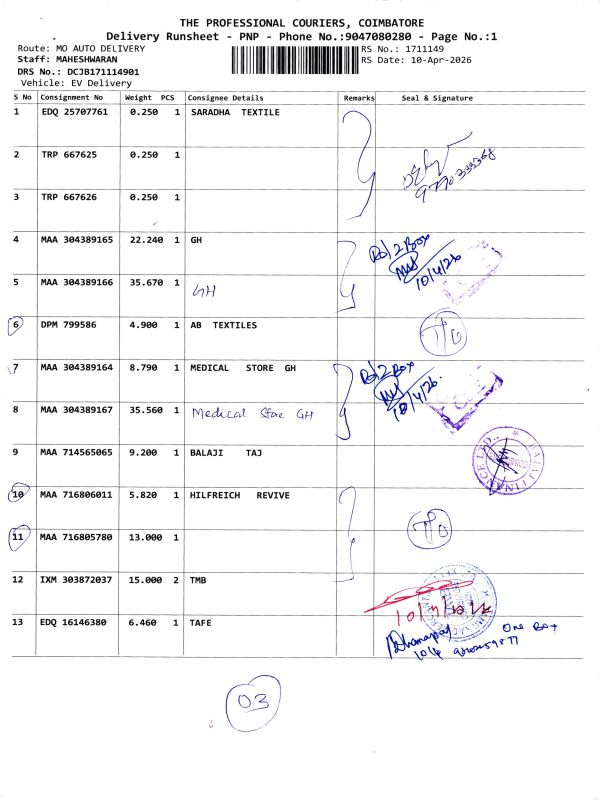 THE PROFESSIONAL COURIERS, COIMBATORE
Delivery Runsheet - PNP - Phone No.:9047080280 - Page No.:1
Route: MO AUTO DELIVERY
RS No.: 1711149
Staff: MAHESHWARAN
RS Date: 10-Apr-2026
DRS No.: DCJB171114901
Vehicle: EV Delivery
S No Consignment No Weight PCS Consignee Details Remarks Seal & Signature
1 EDQ 25707761 0.250 1 SARADHA TEXTILE
2 TRP 667625 0.250 1
3 TRP 667626 0.250 1
4 MAA 304389165 22.240 1 GH Rd/2 Box
10/4/26
5 MAA 304389166 35.670 1 GH
6 DPM 799586 4.900 1 AB TEXTILES T/O
7 MAA 304389164 8.790 1 MEDICAL STORE GH Rd/2 Box
10/4/26
8 MAA 304389167 35.560 1 Medical Store GH
9 MAA 714565065 9.200 1 BALAJI TAJ
BAJAJ FINANCE LTD.
10 MAA 716806011 5.820 1 HILFREICH REVIVE
11 MAA 716805780 13.000 1 T/O
12 IXM 303872037 15.000 2 TMB
13 EDQ 16146380 6.460 1 TAFE One Box
10/4
03